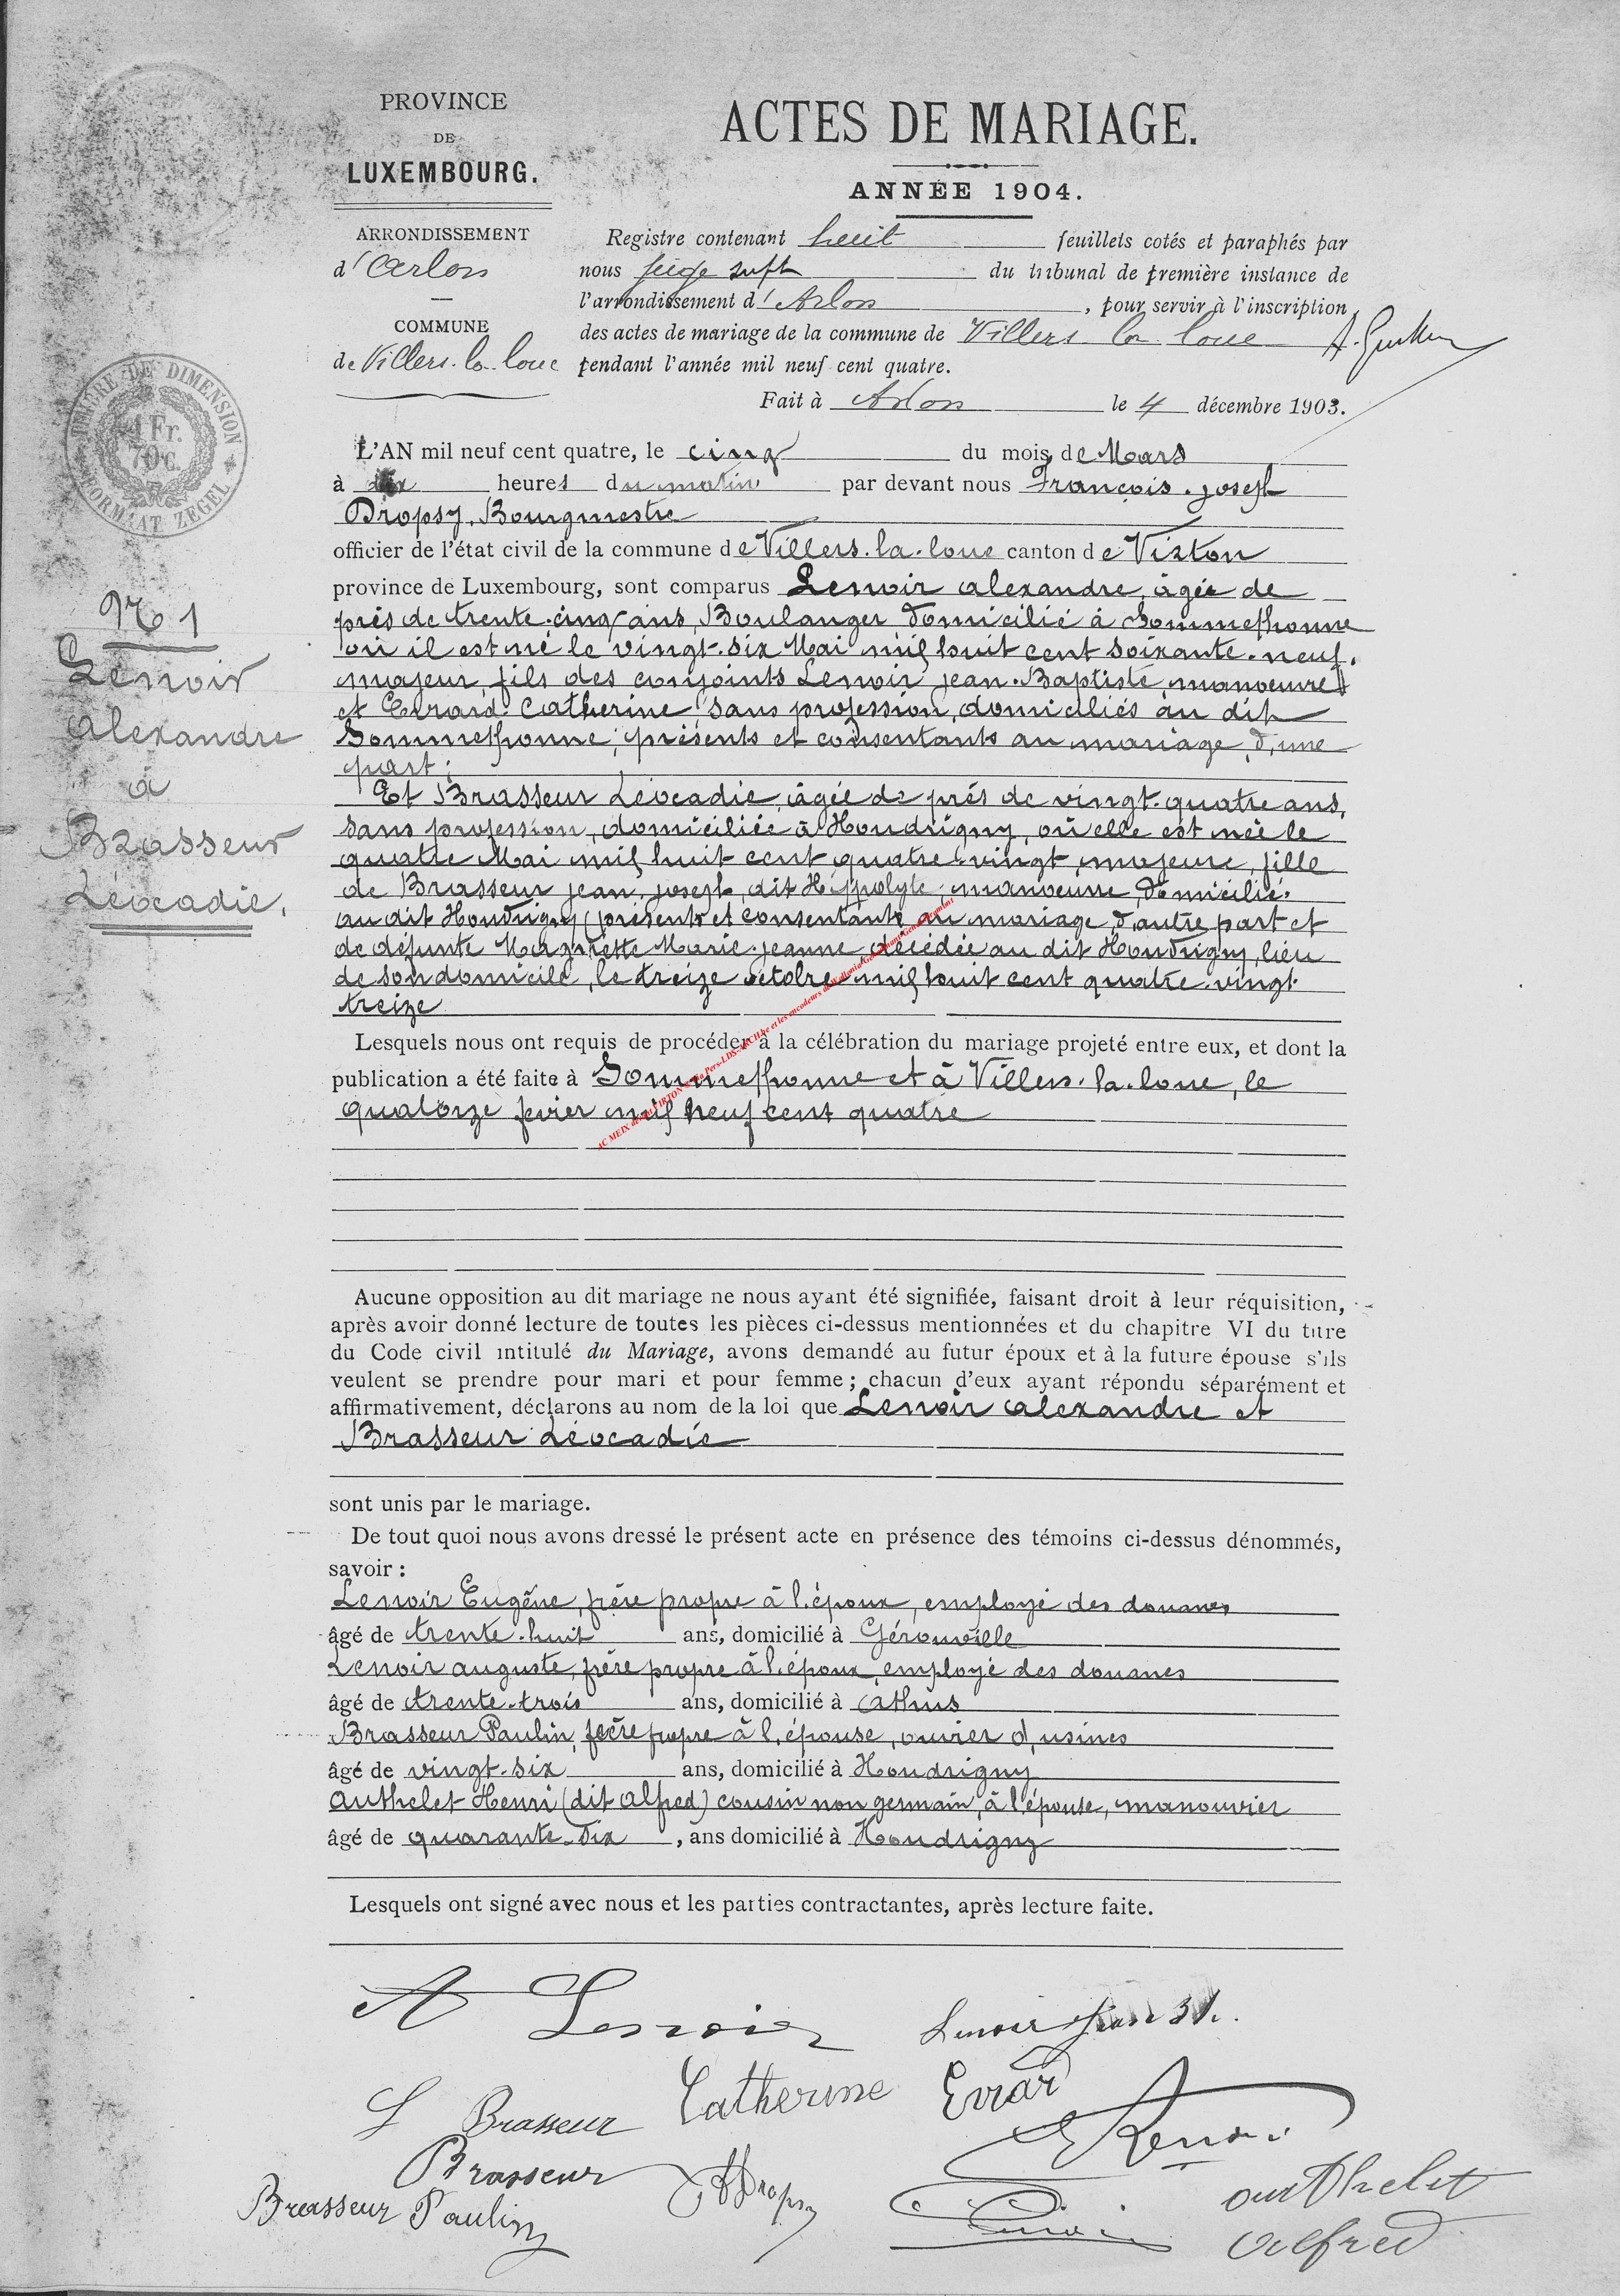 PROVINCE
DE
LUXEMBOURG.
ACTES DE MARIAGE.
ANNÉE 1904.
ARRONDISSEMENT
d'Arlon
COMMUNE
de Villers-la-loue
Registre contenant huit feuillets cotés et paraphés par
nous juge suppt du tribunal de première instance de
l'arrondissement d'Arlon, pour servir à l'inscription
des actes de mariage de la commune de Villers la loue
pendant l'année mil neuf cent quatre.
Fait à Arlon le 4 décembre 1903.
TIMBRE DE DIMENSION
1 Fr.
70 c.
FORMAAT ZEGEL
L'AN mil neuf cent quatre, le cinq du mois de Mars
à dix heures du matin par devant nous François-joseph
Dropsy, Bourgmestre
officier de l'état civil de la commune de Villers-la-loue canton de Virton
province de Luxembourg, sont comparus Lenoir alexandre, âgée de
près de trente-cinq ans, Boulanger domicilié à Sommethonne
où il est né le vingt-six Mai mil huit cent soixante-neuf,
majeur, fils des conjoints Lenoir jean-Baptiste, manoeuvre
et Evrard Catherine, sans profession, domiciliés au dit
Sommethonne, présents et consentants au mariage, d'une
part;
Et Brasseur Léocadie, âgée de près de vingt-quatre ans,
sans profession, domiciliée à Houdrigny, où elle est née le
quatre Mai mil huit cent quatre-vingt, majeure, fille
de Brasseur jean-joseph, dit Hippolyte, manoeuvre, domicilié
au dit Houdrigny (présent et consentant au mariage, d'autre part et
de défunte Marie-jeanne décédée au dit Houdrigny, lieu
de son domicile, le treize octobre mil huit cent quatre-vingt
treize
Lesquels nous ont requis de procéder à la célébration du mariage projeté entre eux, et dont la
publication a été faite à Sommethonne et à Villers-la-loue, le
quatorze fevier mil neuf cent quatre
No 1
Lenoir
alexandre
à
Brasseur
Léocadie.
Aucune opposition au dit mariage ne nous ayant été signifiée, faisant droit à leur réquisition,
après avoir donné lecture de toutes les pièces ci-dessus mentionnées et du chapitre VI du titre
du Code civil intitulé du Mariage, avons demandé au futur époux et à la future épouse s'ils
veulent se prendre pour mari et pour femme; chacun d'eux ayant répondu séparément et
affirmativement, déclarons au nom de la loi que Lenoir alexandre et
Brasseur Léocadie
sont unis par le mariage.
De tout quoi nous avons dressé le présent acte en présence des témoins ci-dessus dénommés,
savoir :
Lenoir Eugène, frère propre à l'époux, employé des douanes
âgé de trente-huit ans, domicilié à Gérouville
Lenoir auguste, frère propre à l'époux, employé des douanes
âgé de trente-trois ans, domicilié à athus
Brasseur Paulin, frère propre à l'épouse, ouvrier d'usines
âgé de vingt-six ans, domicilié à Houdrigny
authelet Henri (dit alfred) cousin non germain, à l'épouse, manouvrier
âgé de quarante-six, ans domicilié à Houdrigny
Lesquels ont signé avec nous et les parties contractantes, après lecture faite.
A Lenoir
Lenoir Jean Bt.
L Brasseur Catherine Evrard
E Lenoir
Brasseur
Dropsy
Brasseur Paulin
Lenoir
authelet
alfred